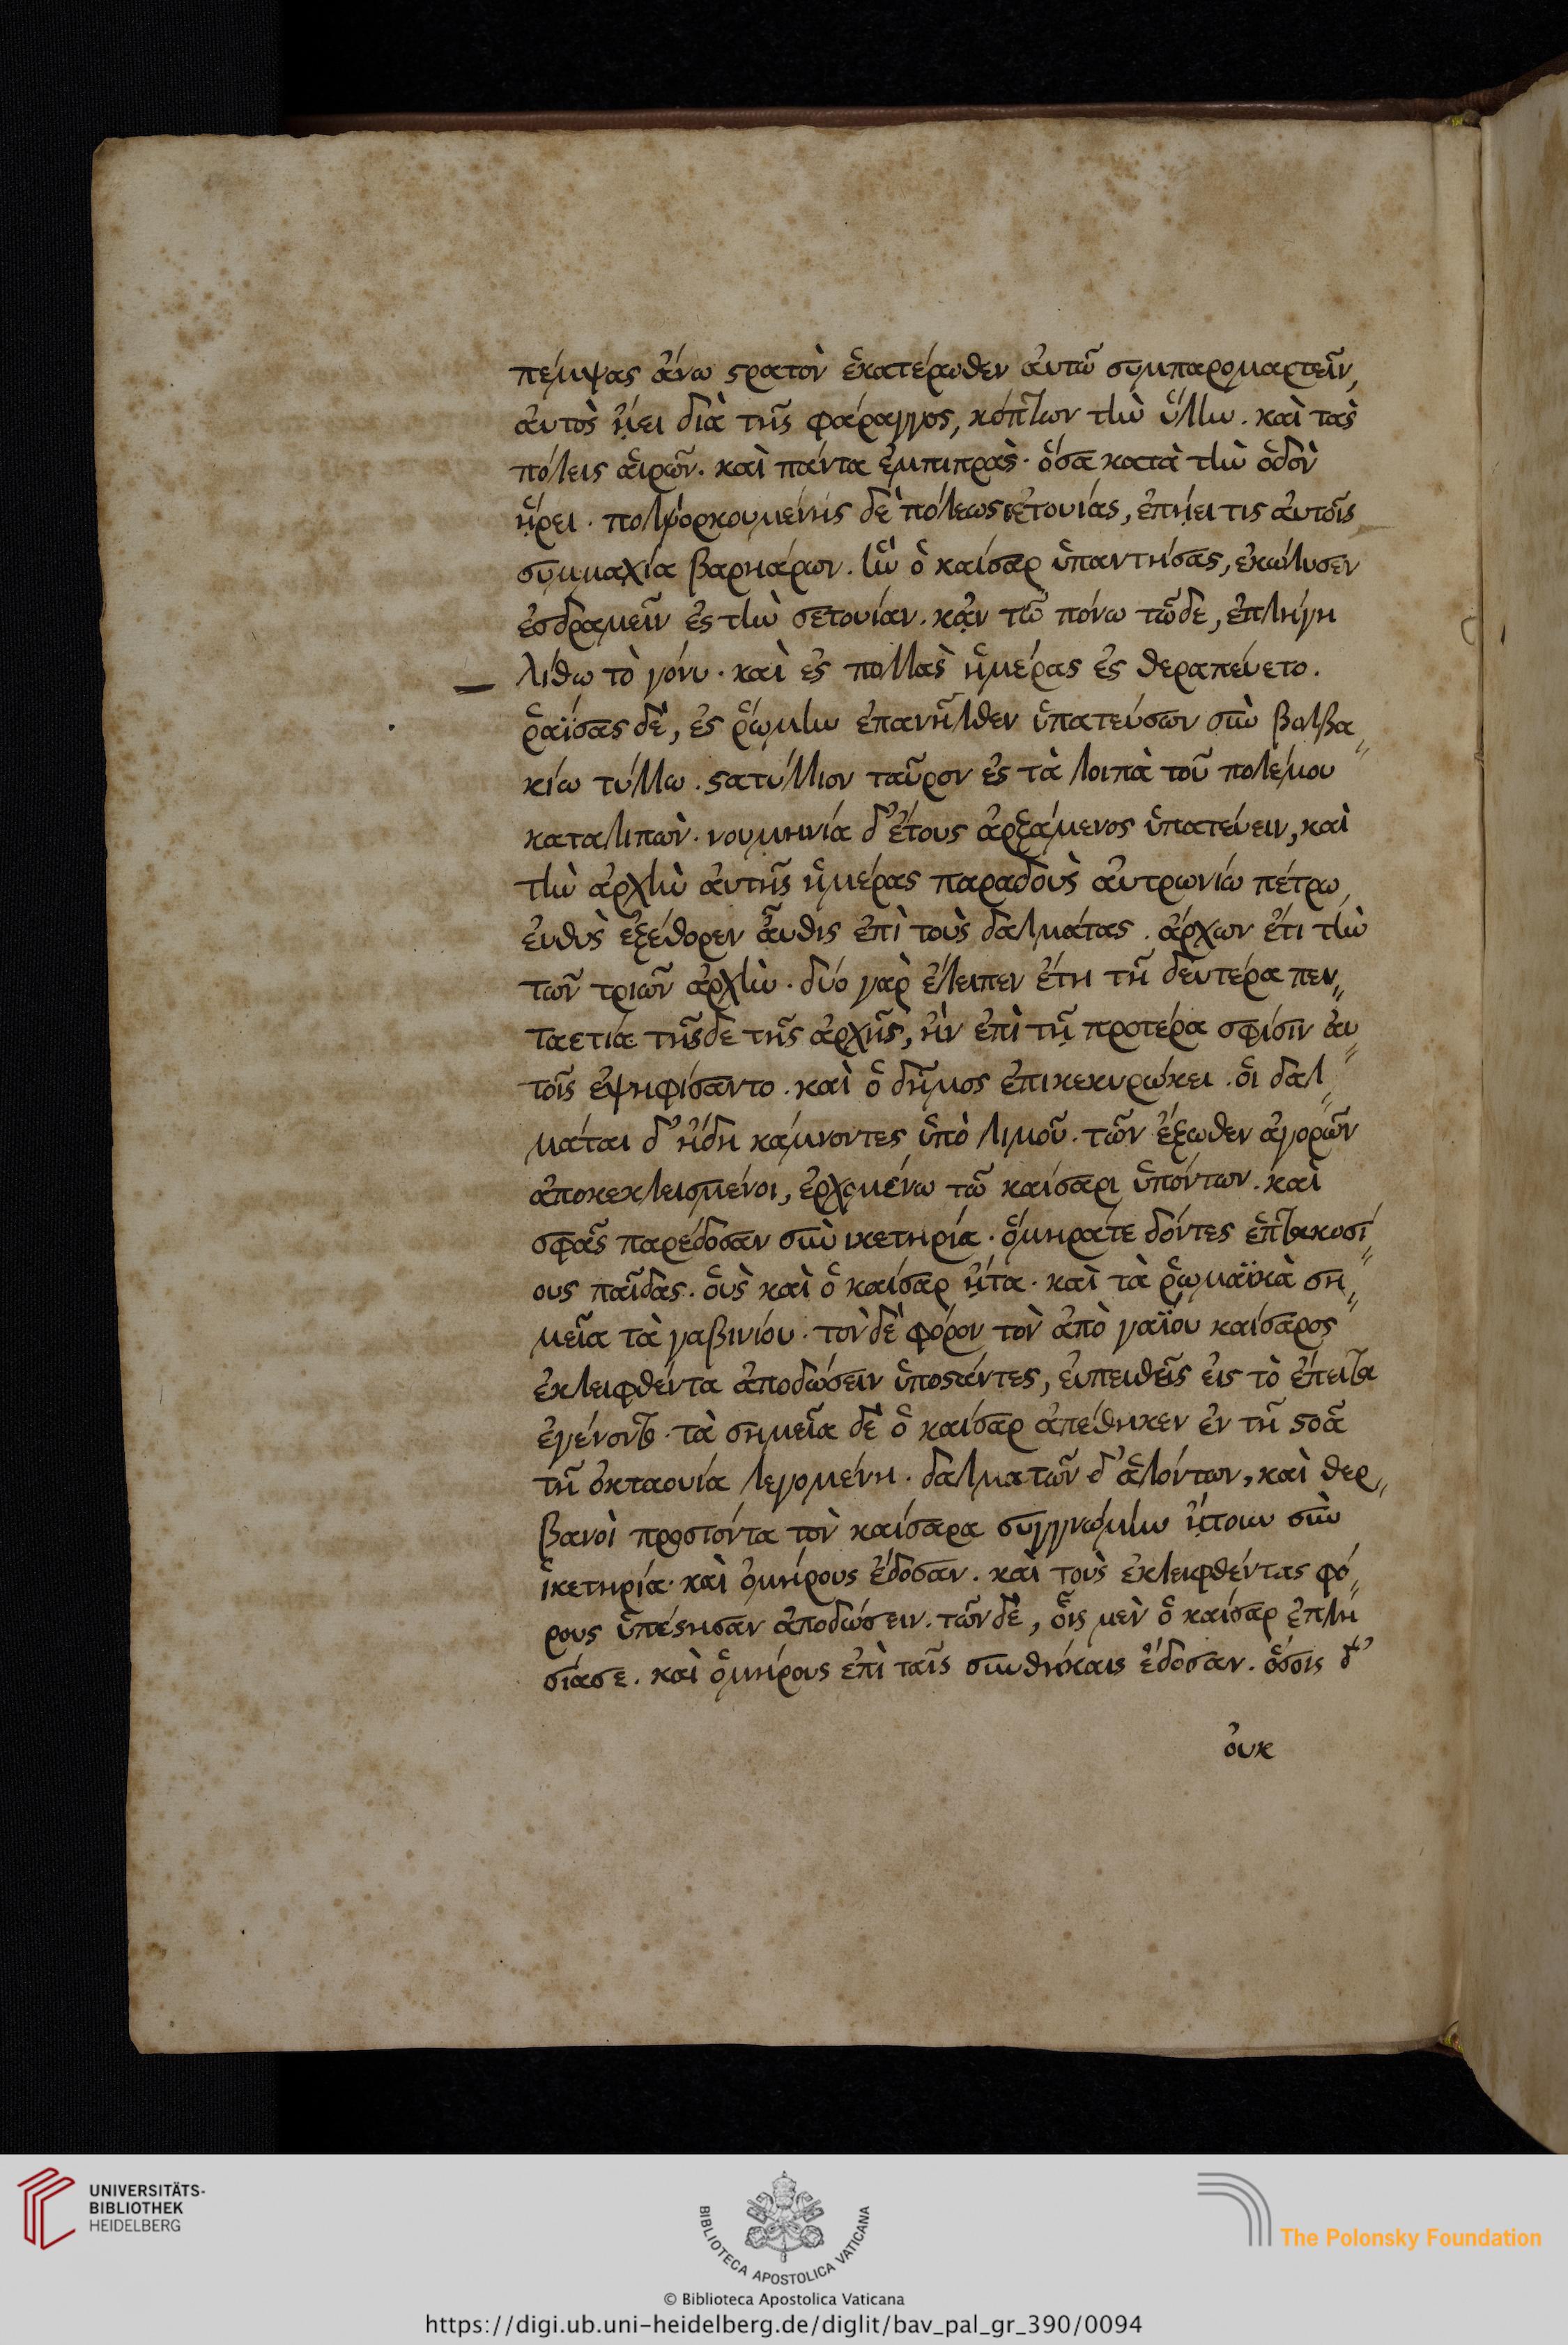 πέμψας ἄνω στρατὸν ἑκατέρωθεν ἀυτῶ συμπαρομαρτεῖν,
ἀυτὸς ᾔει διὰ τῆς φάραγγος, κόπτων τὴν ὕλην. καὶ τὰς
πόλεις ἁιρῶν. καὶ πάντα ἐμπιπρὰς· ὅσα κατὰ τὴν ὁδὸν
ᾕρει. πολιορκουμένης δὲ πόλεως σετουίας, ἐπῄει τις ἀυτοῖς
συμμαχία βαρβάρων. ἣν ὁ καίσαρ ὑπαντήσας, ἐκώλυσεν
ἐσδραμεῖν ἐς τὴν σετουίαν. κᾀν τῶ πόνω τῶδε, ἐπλήγη
λίθω τὸ γόνυ. καὶ ἐς πολλὰς ἡμέρας ἐς θεραπεύετο.
ῥαΐσας δὲ, ἐς ῥώμην ἐπανῆλθεν ὑπατεύσων σὺν βαλβα
κίω τύλλω. στατύλλιον ταῦρον ἐς τὰ λοιπὰ τοῦ πολέμου
καταλιπὼν. νουμηνία δ' ἔτους ἀρξάμενος ὑπατεύειν, καὶ
τὴν ἀρχὴν ἀυτῆς ἡμέρας παραδοὺς ἀυτρωνίω πέτρω,
ἐυθὺς ἐξέθορεν ἆυθις ἐπὶ τοὺς δαλμάτας. ἄρχων ἔτι τὴν
τῶν τριῶν ἀρχὴν. δύο γὰρ ἔλειπεν ἔτη τῆ δευτέρα πεν
ταετία τῆσδε τῆς ἀρχῆς, ἣν ἐπὶ τῇ προτέρα σφίσιν ἀυ
τοῖς ἐψηφίσαντο. καὶ ὁ δῆμος ἐπικεκυρώκει. ὁι δαλ
μάται δ' ἤδη κάμνοντες ὑπὸ λιμοῦ. τῶν ἔξωθεν ἀγορῶν
ἀποκεκλεισμένοι, ἐρχομένω τῶ καίσαρι ὑπόντων. καὶ
σφᾶς παρέδοσαν σὺν ικετηρία. ὅμηράτε δόντες ἑπτακοσί
ους παῖδας. ὁὺς καὶ ὁ καίσαρ ᾔτα. καὶ τὰ ῥωμαϊκὰ ση
μεῖα τὰ γαβινίου. τὸν δὲ φόρον τὸν ἀπὸ γαΐου καίσαρος
ἐκλειφθέντα ἀποδώσειν ὑποστάντες, ἐυπειθεῖς ἐις τὸ ἔπειτα
ἐγένοντο. τὰ σημεῖα δὲ ὁ καίσαρ ἀπέθηκεν ἐν τῆ στοᾶ
τῆ ὀκταουία λεγομένη. δαλματῶν δ' ἁλόντων, καὶ θερ
βανοὶ προσιόντα τὸν καίσαρα συγγνώμην ᾔτουν σὺν
ἱκετηρία. καὶ ὁμήρους ἔδοσαν. καὶ τοὺς ἐκλειφθέντας φό
ρους ὑπέστησαν ἀποδώσειν. τῶν δὲ, ὁῖς μὲν ὁ καίσαρ ἐπλη
σίασε. καὶ ὁμήρους ἐπὶ ταῖς συνθήκαις ἔδοσαν. ὅσοις δ'
ὀυκ
UNIVERSITÄTS-
BIBLIOTHEK
HEIDELBERG
BIBLIOTECA APOSTOLICA VATICANA
The Polonsky Foundation
© Biblioteca Apostolica Vaticana
https://digi.ub.uni-heidelberg.de/diglit/bav_pal_gr_390/0094